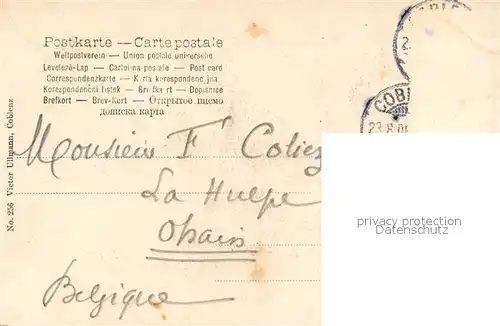 Postkarte — Carte postale
Weltpostverein — Union postale universelle
Levelező-Lap — Cartolina postale — Post card
Correspondenzkarte — Karta korespondencyjna
Korespondenční lístek — Briefkaart — Dopisnice
Brefkort — Brev-Kort — Открытое письмо
дописна карта
COB
23.8.0
No. 256 Victor Ullmann, Coblenz
Monsieur F Coliez
La Hulpe
Ohain
Belgique
privacy protection
Datenschutz